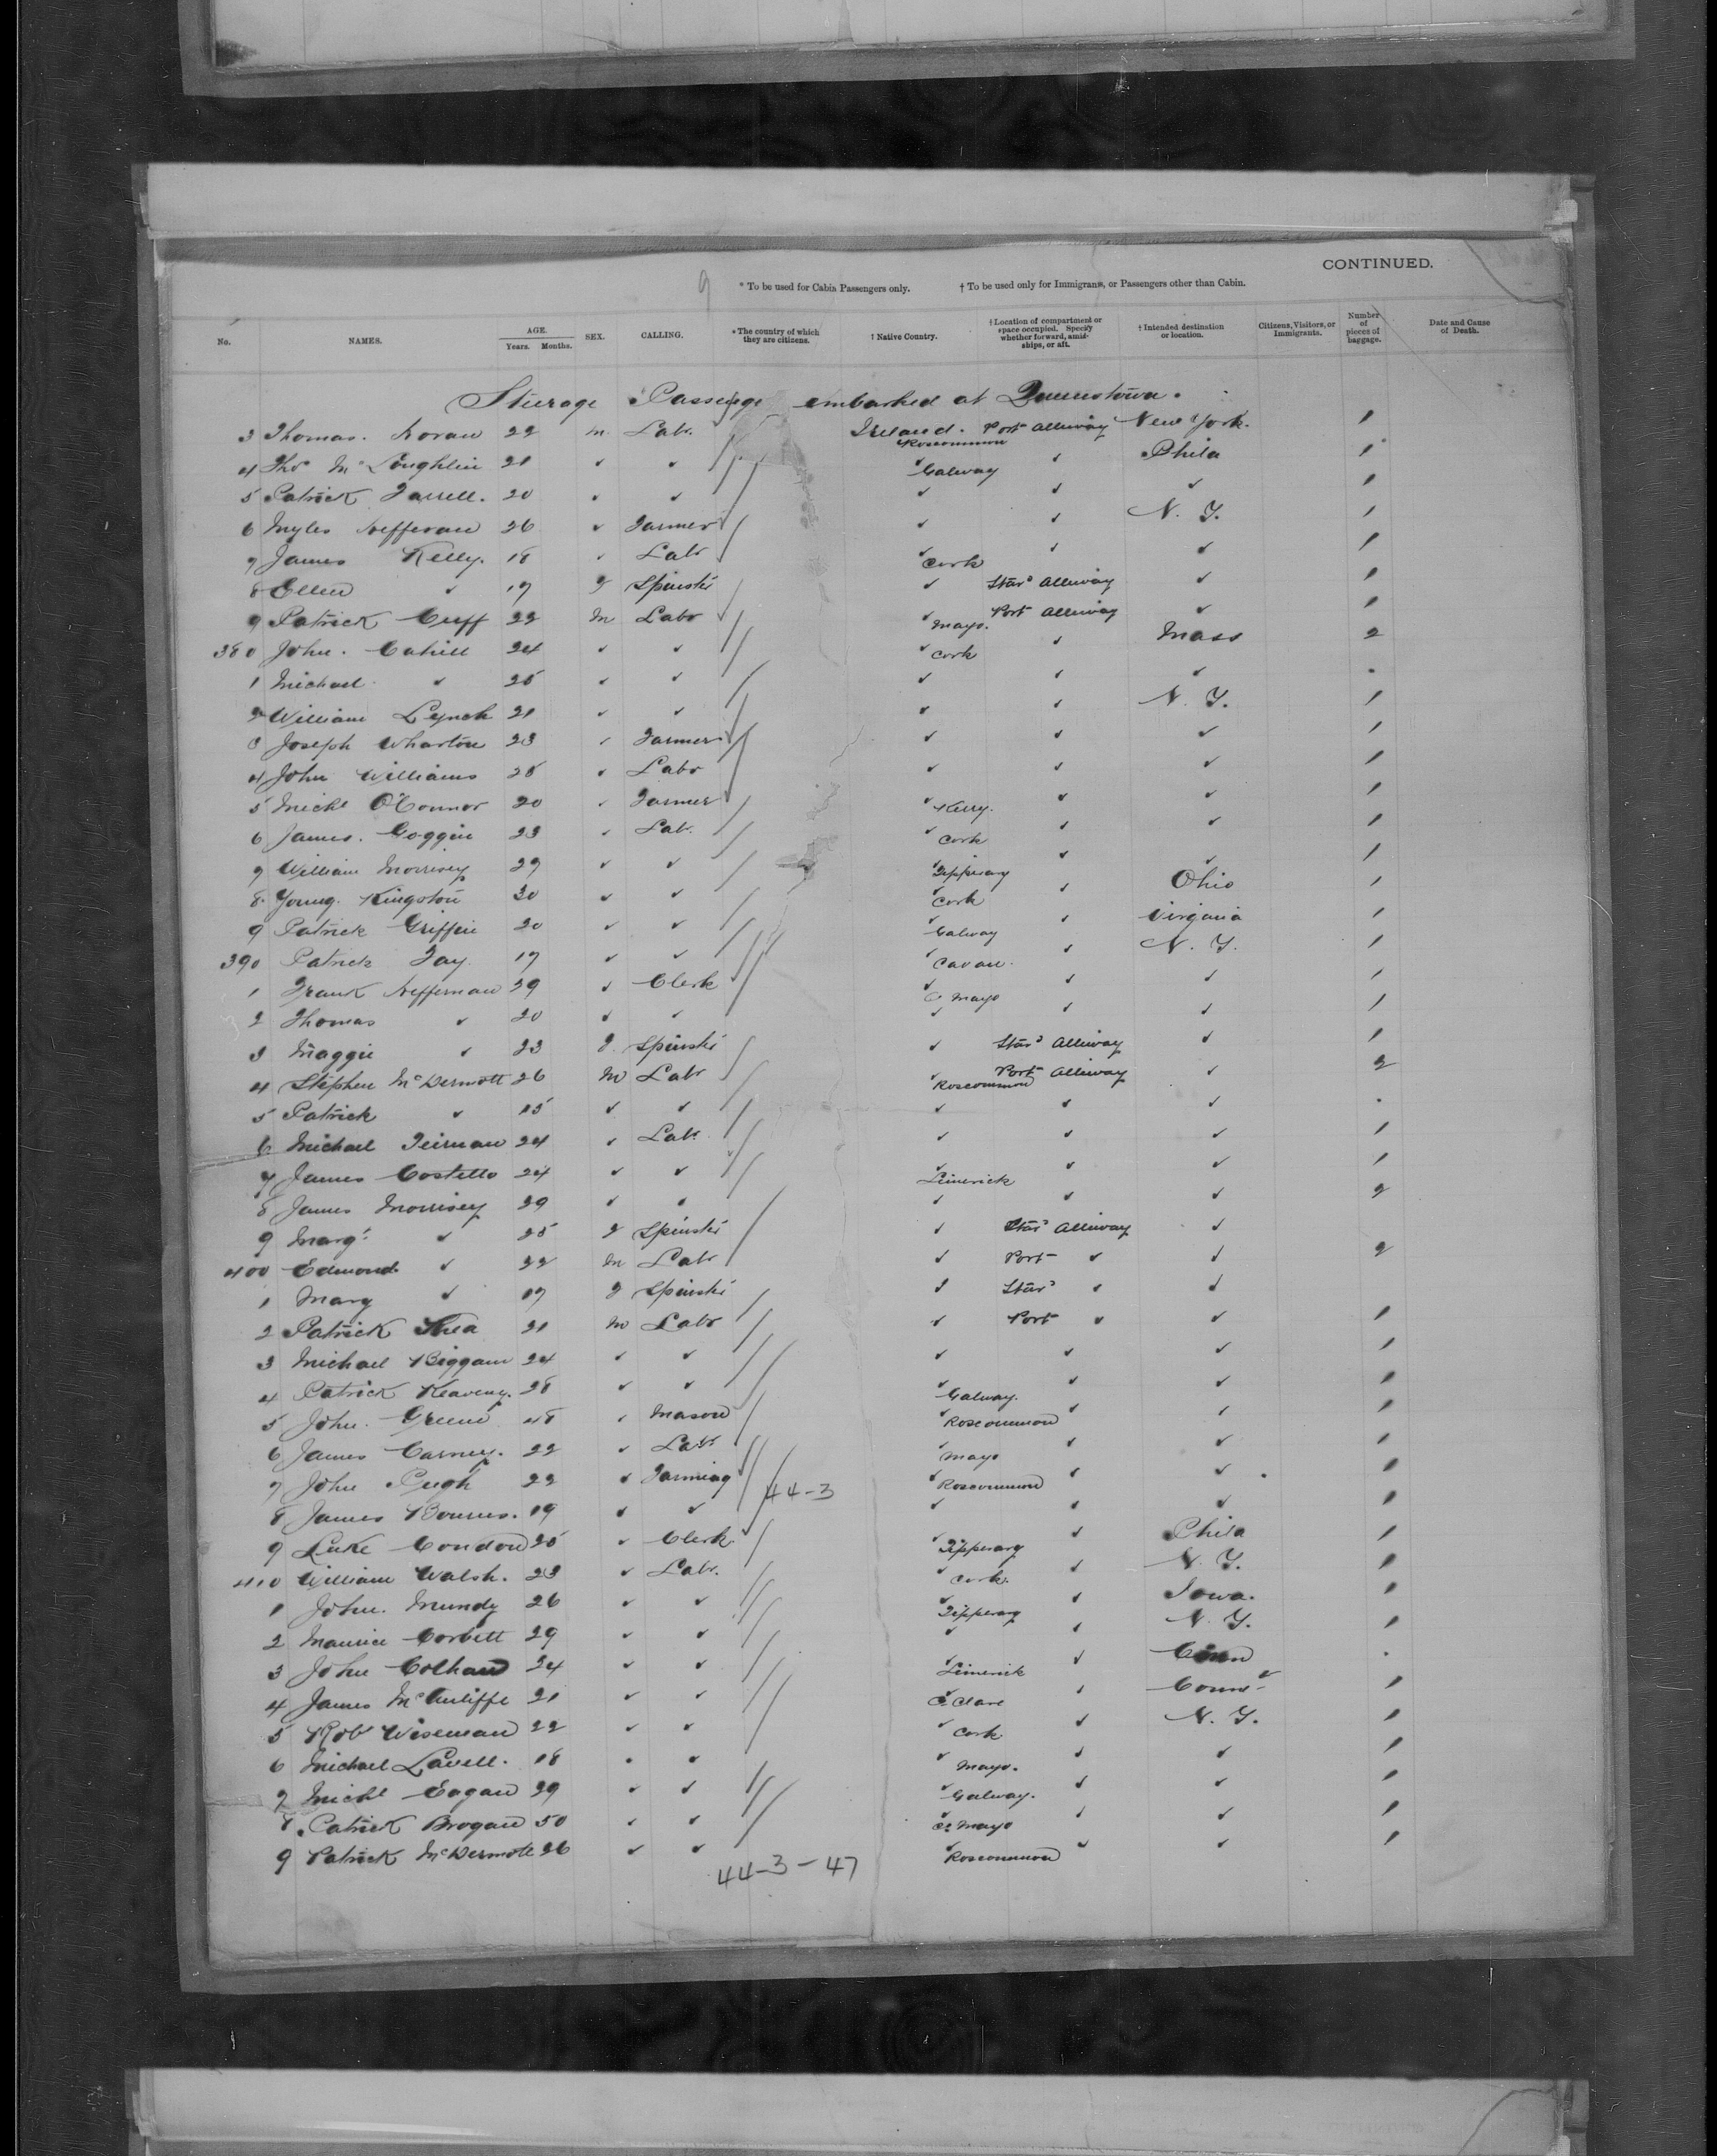 CONTINUED.
9 * To be used for Cabin Passengers only. † To be used only for Immigrans, or Passengers other than Cabin.
No. NAMES. AGE. Years. Months. SEX. CALLING. * The country of which they are citizens. † Native Country. † Location of compartment or space occupied. Specify whether forward, amidships, or aft. † Intended destination or location. Citizens, Visitors, or Immigrants. Number of pieces of baggage. Date and Cause of Death.
Steerage Passengs embarked at Queenstown.
3 Thomas. Horan 22 m. Labr. Ireland. Roscommon Port Alleiway New York. 1
4 Thos McLoughlin 21 ✓ ✓ ✓ Galway ✓ Phila 1
5 Patrick Farrell. 20 ✓ ✓ ✓ ✓ ✓ 1
6 Myles Hefferan 26 ✓ Farmer ✓ ✓ N. Y. 1
7 James Kelly. 18 ✓ Labr ✓ Cork ✓ ✓ 1
8 Ellen ✓ 17 F Spinstr ✓ Starb Alleiway ✓ 1
9 Patrick Cuff 22 M Labr ✓ Mayo. Port Alleiway ✓ 1
380 John. Cahill 24 ✓ ✓ ✓ Cork ✓ Mass 2
1 Michael ✓ 25 ✓ ✓ ✓ ✓ ✓ .
2 William Lynch 21 ✓ ✓ ✓ ✓ N. Y. 1
3 Joseph Wharton 23 ✓ Farmer ✓ ✓ ✓ 1
4 John Williams 28 ✓ Labr ✓ ✓ ✓ 1
5 Michl O'Connor 20 ✓ Farmer ✓ Kerry. ✓ ✓ 1
6 James. Goggin 23 ✓ Labr. ✓ Cork ✓ ✓ 1
7 William Morrisey 29 ✓ ✓ ✓ Tipperary ✓ ✓ 1
8. Young. Kingston 30 ✓ ✓ ✓ Cork ✓ Ohio 1
9 Patrick Griffin 20 ✓ ✓ ✓ Galway ✓ Virginia 1
390 Patrick Fay. 19 ✓ ✓ ✓ Cavan. ✓ N. Y. 1
1 Frank Heffernan 29 ✓ Clerk ✓ Co Mayo ✓ ✓ 1
2 Thomas ✓ 20 ✓ ✓ ✓ ✓ ✓ 1
3 Maggie ✓ 23 F. Spinstr ✓ Starb Alleiway ✓ 1
4 Stephen McDermott 26 M Labr ✓ Roscommon Port Alleiway ✓ 2
5 Patrick ✓ 15 ✓ ✓ ✓ ✓ ✓ .
6 Michael Teirnan 24 ✓ Labr. ✓ ✓ ✓ 1
7 James Costello 24 ✓ ✓ ✓ Limerick ✓ ✓ 1
8 James Morrisey 29 ✓ ✓ ✓ ✓ ✓ 2
9 Margt ✓ 25 F Spinstr ✓ Starb Alleiway ✓
400 Edmond ✓ 22 M Labr ✓ Port ✓ ✓ 2
1 Mary ✓ 17 F Spinstr ✓ Starb ✓ ✓
2 Patrick Shea 21 M Labr ✓ Port ✓ ✓ 1
3 Michael Biggam 24 ✓ ✓ ✓ ✓ ✓ 1
4 Patrick Keaveny. 28 ✓ ✓ ✓ Galway. ✓ ✓ 1
5 John. Green 48 ✓ Mason ✓ Roscommon ✓ ✓ 1
6 James Carney. 22 ✓ Labr ✓ Mayo ✓ ✓ 1
7 John Pugh 22 ✓ Farming 44-3 ✓ Roscommon ✓ ✓ 1
8 James Bournes. 19 ✓ ✓ ✓ ✓ ✓ 1
9 Luke Condon 25 ✓ Clerk ✓ Tipperary ✓ Phila 1
410 William Walsh. 23 ✓ Labr. ✓ Cork. ✓ N. Y. 1
1 John. Mundy 26 ✓ ✓ ✓ Tipperary ✓ Iowa. 1
2 Maurice Corbett 29 ✓ ✓ ✓ ✓ N. Y. 1
3 John Colhan 24 ✓ ✓ ✓ Limerick ✓ Conn .
4 James McAuliffe 21 ✓ ✓ ✓ Co. Clare ✓ Conn 1
5 Robt Wiseman 22 ✓ ✓ ✓ Cork ✓ N. Y. 1
6 Michael Lavell. 18 ✓ ✓ ✓ Mayo. ✓ ✓ 1
7 Michl Eagan 29 ✓ ✓ ✓ Galway. ✓ ✓ 1
8 Patrick Brogan 50 ✓ ✓ ✓ Co Mayo ✓ ✓ 1
9 Patrick McDermott 26 ✓ ✓ ✓ Roscommon ✓ ✓ 1
44-3-47